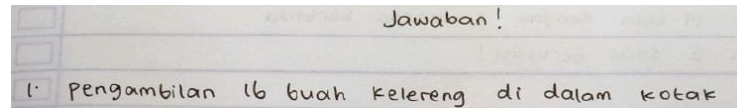 Jawaban!
1. Pengambilan 16 buah kelereng di dalam kotak